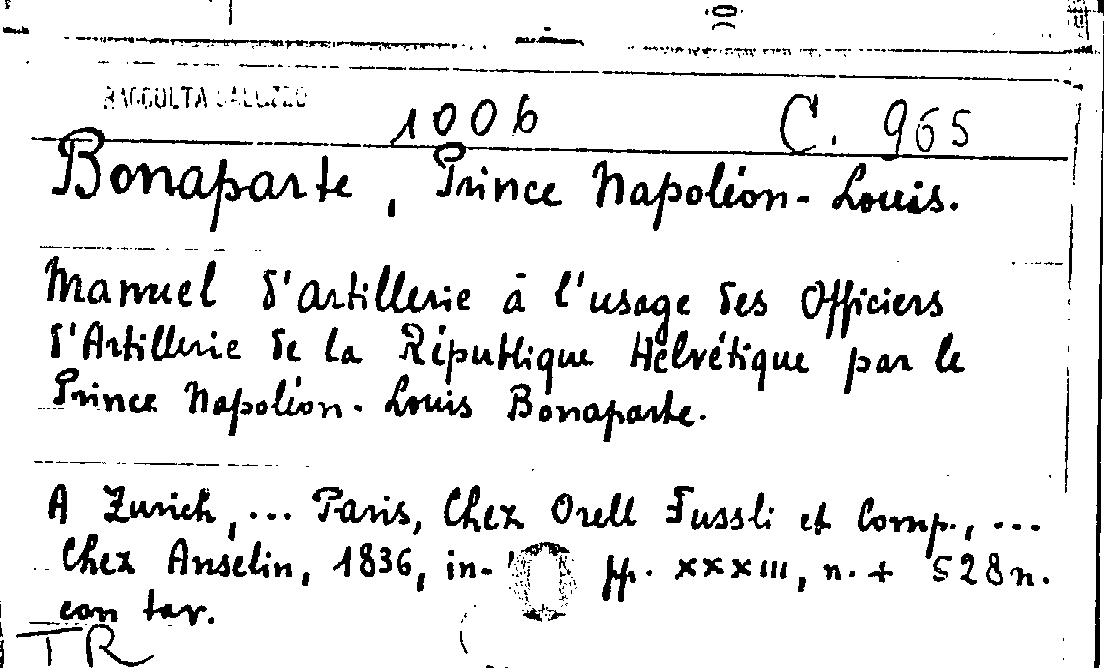 RACCOLTA SALUZZO
1006 C. 965
Bonaparte, Prince Napoléon-Louis.
Manuel d'artillerie à l'usage des Officiers
d'Artillerie de la République Helvétique par le
Prince Napoléon-Louis Bonaparte.
A Zurich, ... Paris, Chez Orell Fussli et Comp., ...
Chez Anselin, 1836, in- pp. XXXIII, n. + 528 n.
con tav.
TR